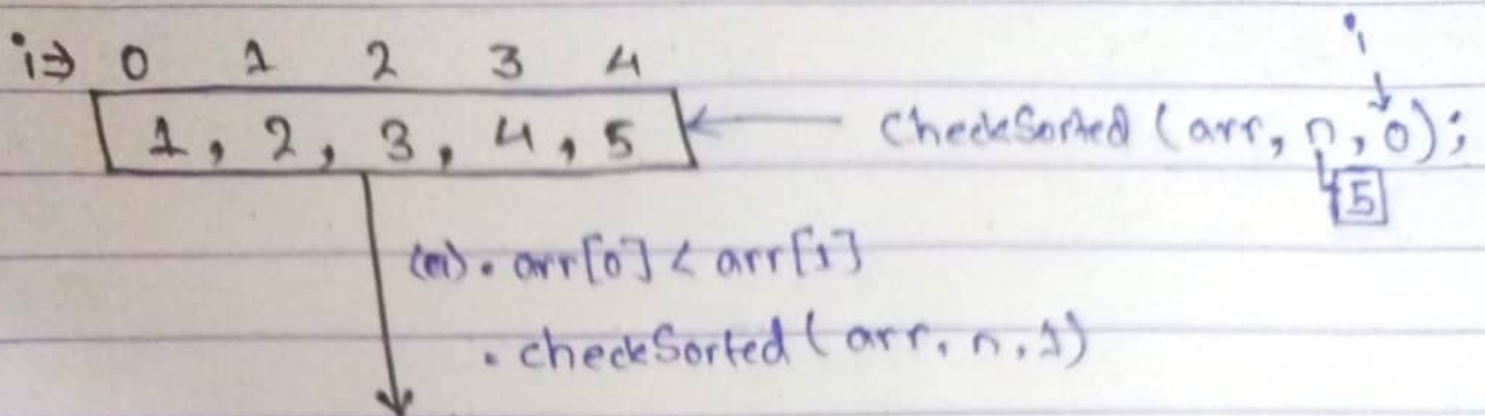 i⇒ 0 1 2 3 4
i
1, 2, 3, 4, 5 ← checkSorted (arr, n, 0);
5
(a) • arr[0] < arr[1]
• checkSorted (arr, n, 1)